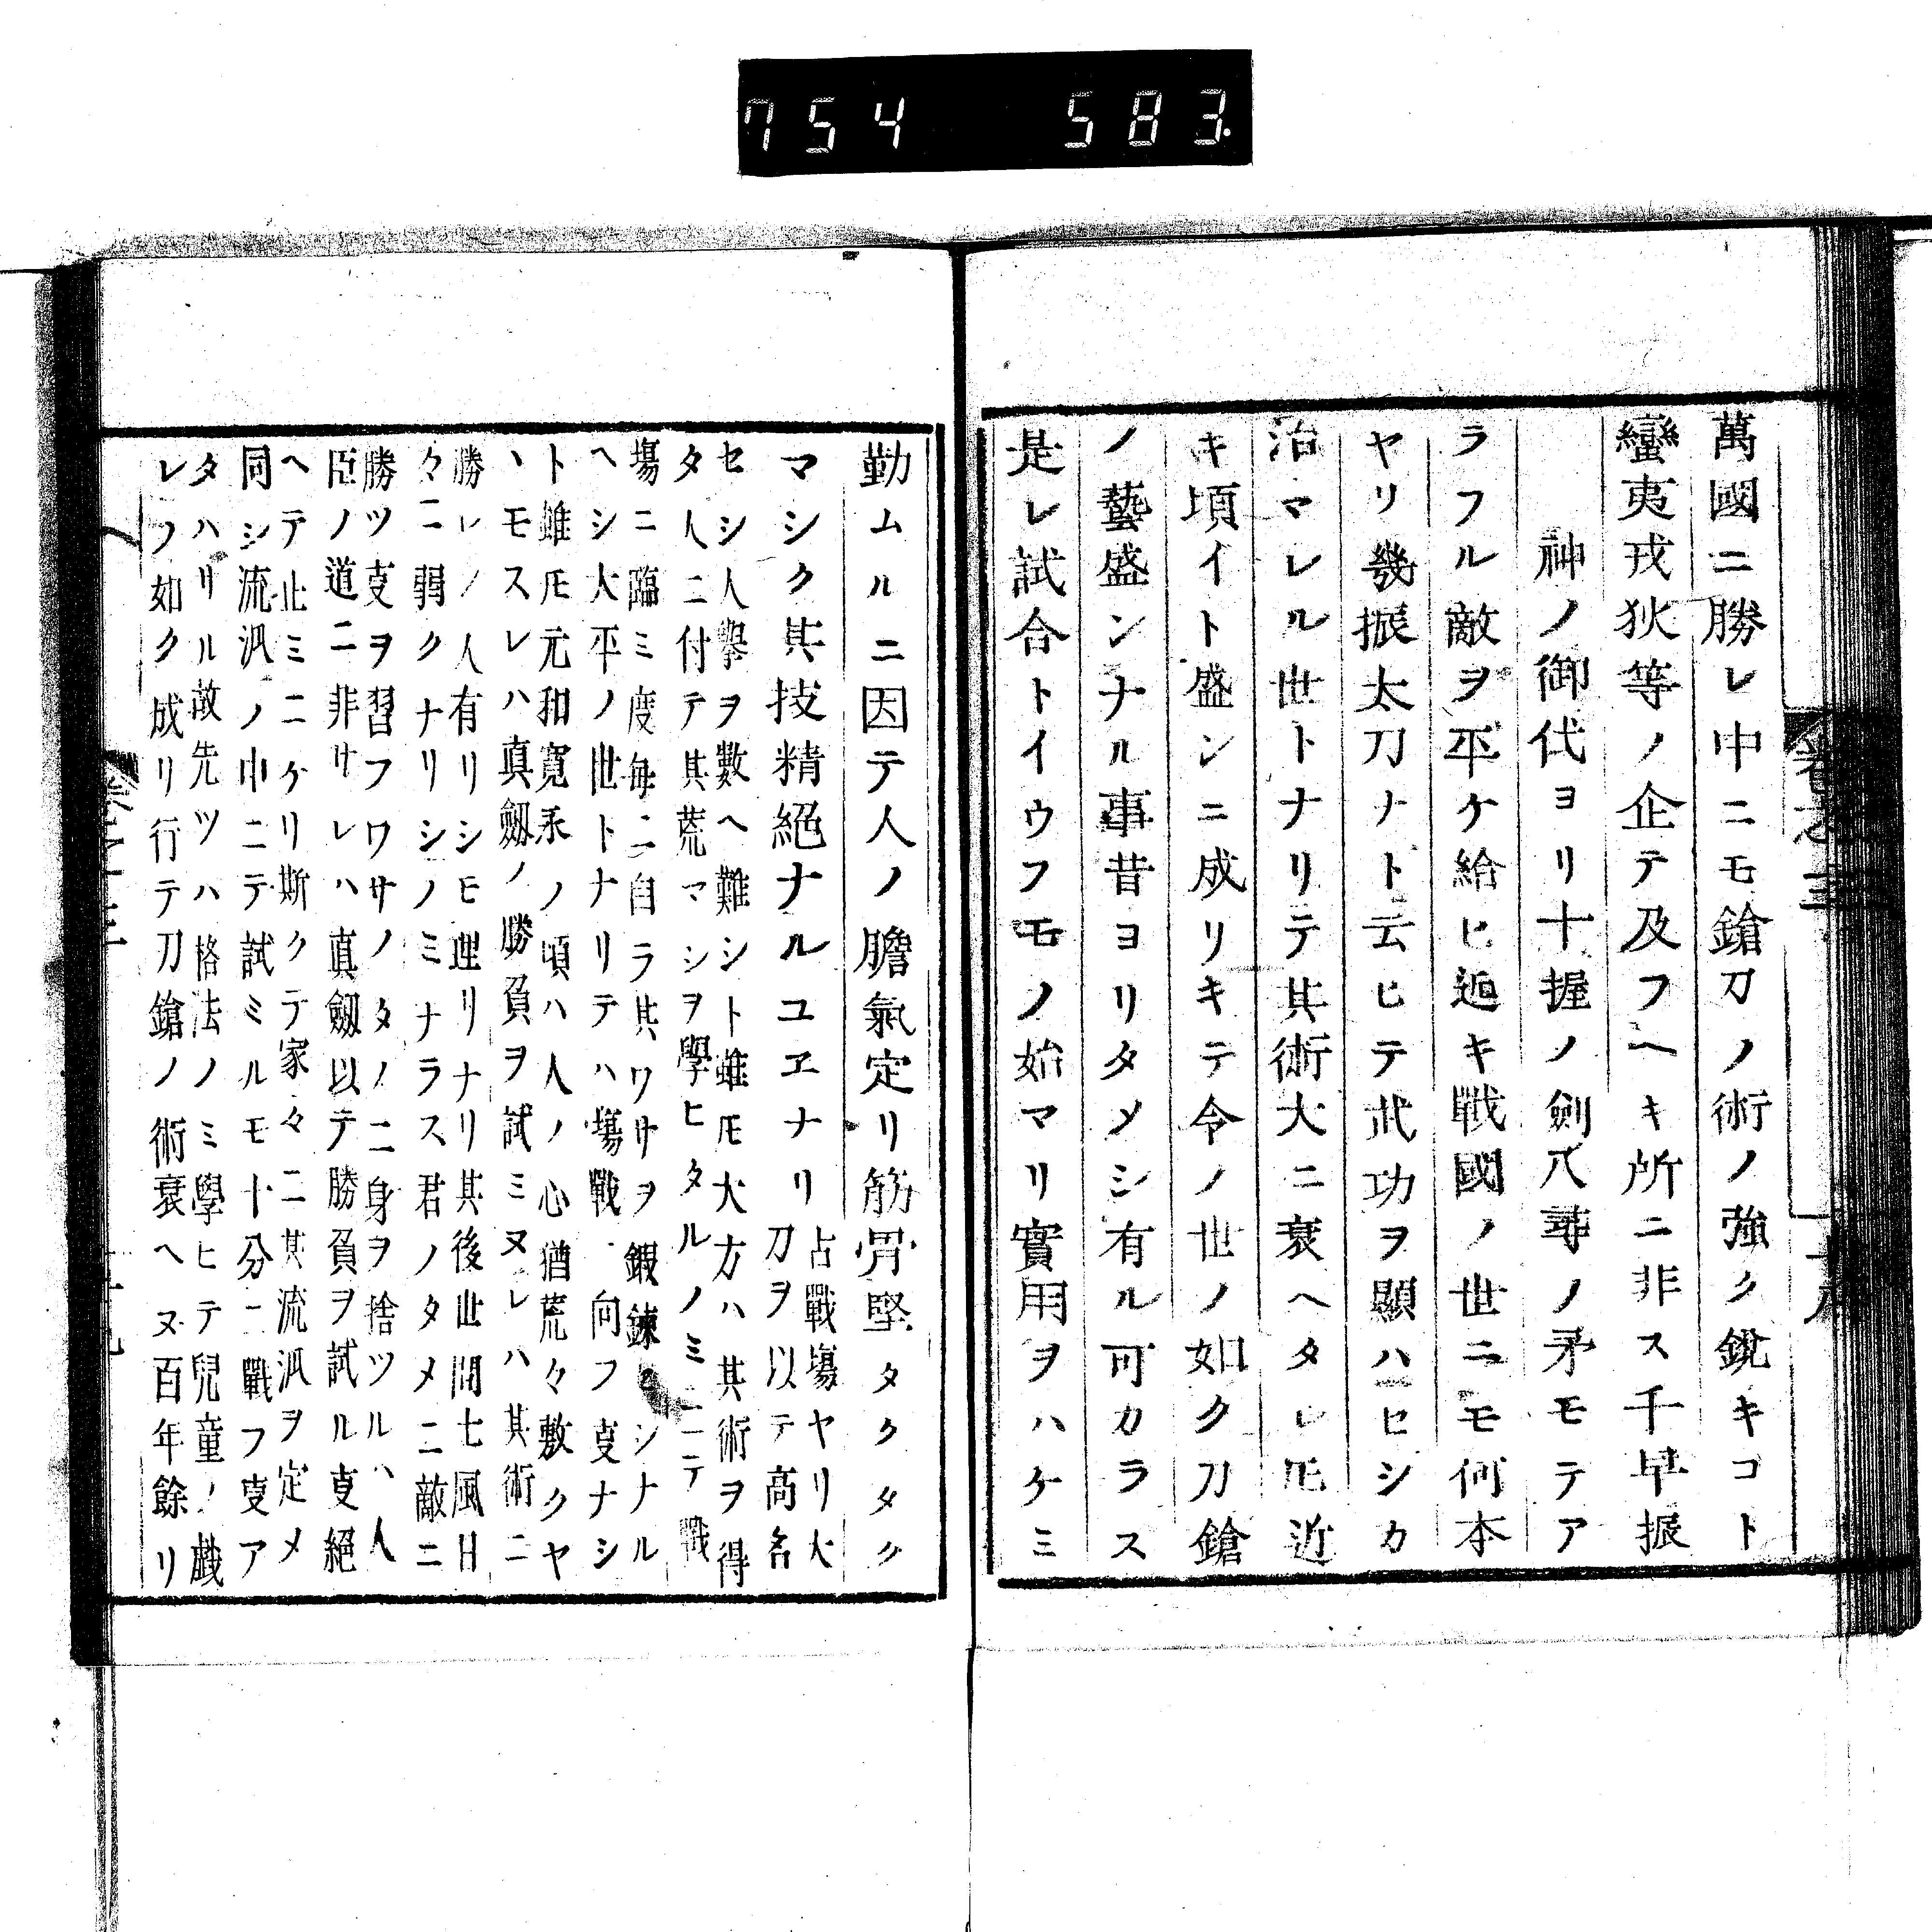 754 583.
萬國ニ勝レ中ニモ鎗刀ノ術ノ強ク銳キコト
蠻夷戎狄等ノ企テ及フヘキ所ニ非ス千早振
神ノ御代ヨリ十握ノ劍八尋ノ矛モテア
ラフル敵ヲ平ケ給ヒ近キ戰國ノ世ニモ何本
ヤリ幾振太刀ナト云ヒテ武功ヲ顯ハセシカ
治マレル世トナリテ其術大ニ衰ヘタレ𪜈近
キ頃イト盛ンニ成リキテ今ノ世ノ如ク刀鎗
ノ藝盛ンナル事昔ヨリタメシ有ル可カラス
是レ試合トイウフモノ始マリ實用ヲハケミ
勤ムルニ因テ人ノ膽氣定リ筋骨堅タクタク
マシク其技精絕ナルユヱナリ
占戰塲ヤリ大
刀ヲ以テ高名
セシ人擧ヲ數ヘ難シト雖𪜈大方ハ其術ヲ得
タ人ニ付テ其荒マシヲ學ヒタルノミニテ戰
塲ニ臨ミ度每ニ自ラ其ワサヲ鍜鍊シナル
ヘシ大平ノ世トナリテハ塲戰向フ叓ナシ
ト雖𪜈元和寛永ノ頃ハ人ノ心猶荒々敷クヤ
丶モスレハ真劔ノ勝負ヲ試ミヌレハ其術ニ
勝レノ人有リシモ理リナリ其後世間七風日
々ニ弱クナリシノミナラス君ノタメニ敵ニ
勝ツ叓ヲ習フワサノタノニ身ヲ捨ツルハ人
臣ノ道ニ非サレハ真劔以テ勝負ヲ試ル叓絕
ヘテ止ミニケリ斯クテ家々ニ其流派ヲ定メ
同シ流派ノ中ニテ試ミルモ十分ニ戰フ叓ア
タハリル故先ツハ格法ノミ學ヒテ兒童ノ戲
レフ如ク成リ行テ刀鎗ノ術衰ヘヌ百年餘リ